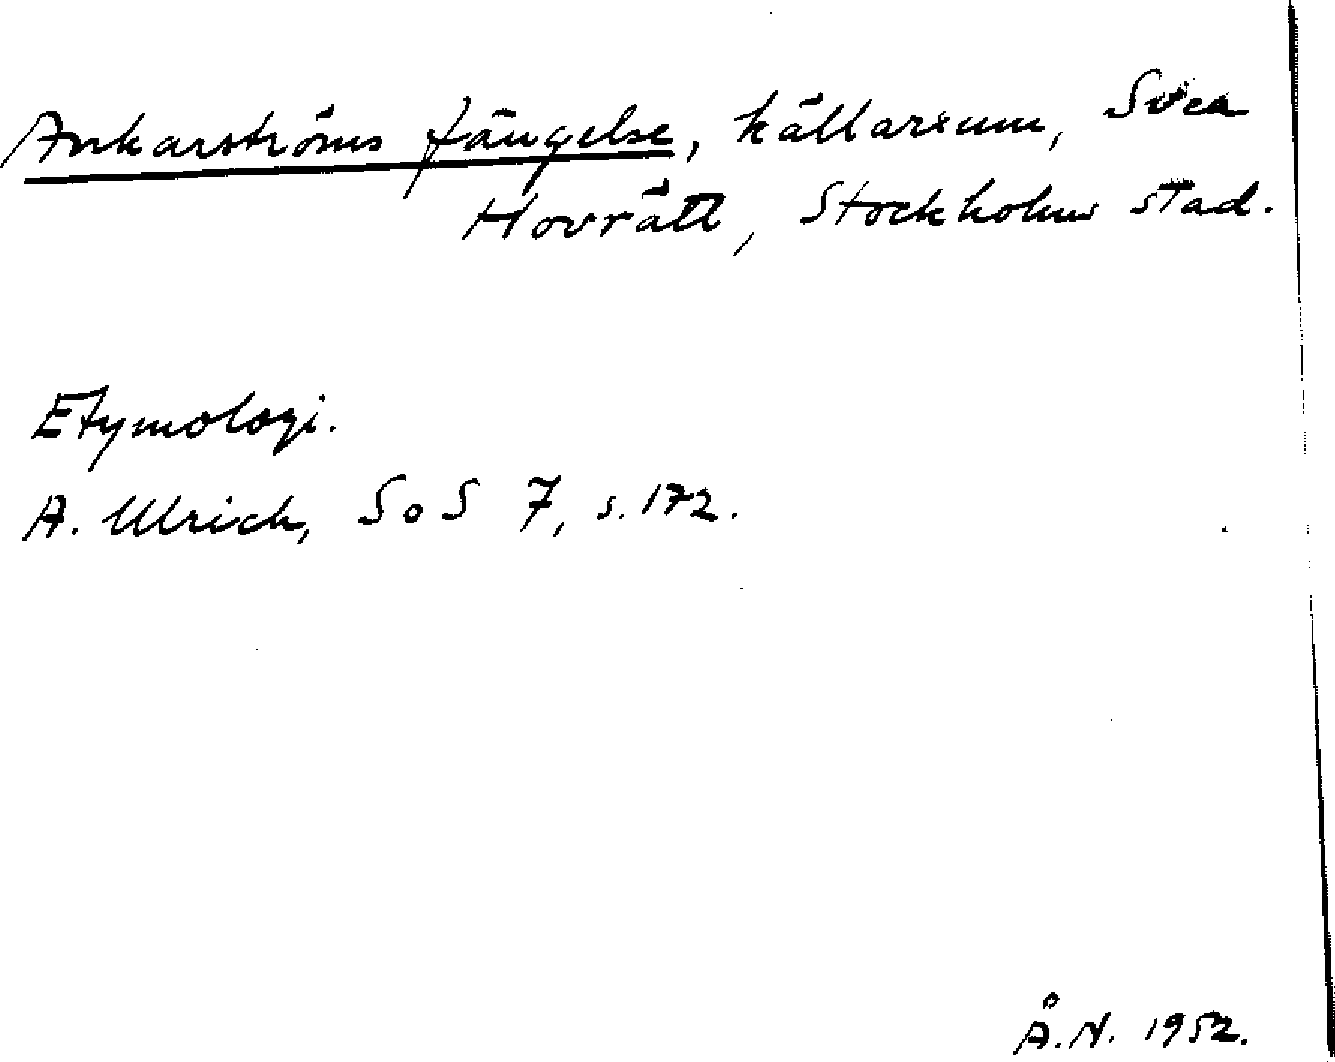 Ankarströms fängelse, källarrum, Svea
Hovrätt, Stockholms stad.
Etymologi.
A. Ulrich, SoS 7, s. 172.
Å.N. 1952.